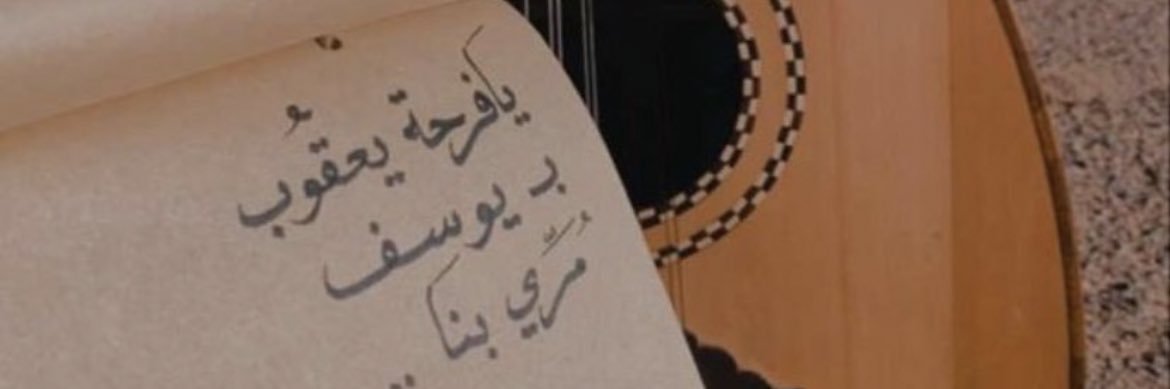 يافرحة يعقُوب
بـ يوسف
مُرّي بنا